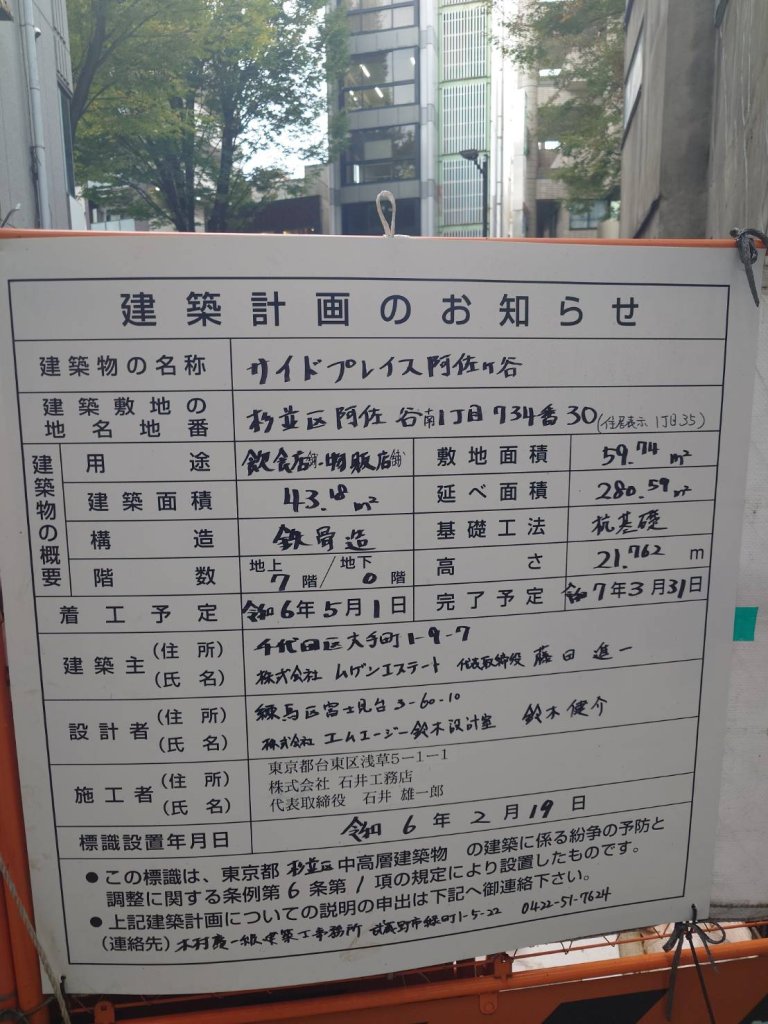 建築計画のお知らせ
建築物の名称 サイドプレイス阿佐ヶ谷
建築敷地の地名地番 杉並区阿佐谷南1丁目734番30(住居表示 1丁目35)
建築物の概要
用途 飲食店舗・物販店舗 敷地面積 59.74㎡
建築面積 43.18㎡ 延べ面積 280.59㎡
構造 鉄骨造 基礎工法 杭基礎
階数 地上7階/地下0階 高さ 21.762m
着工予定 令和6年5月1日 完了予定 令和7年3月31日
建築主(住所) 千代田区大手町1-9-7
(氏名) 株式会社 ムゲンエステート 代表取締役 藤田進一
設計者(住所) 練馬区富士見台3-60-10
(氏名) 株式会社 エムエージー鈴木設計室 鈴木健介
施工者(住所) 東京都台東区浅草5-1-1
(氏名) 株式会社 石井工務店
代表取締役 石井 雄一郎
標識設置年月日 令和6年2月19日
●この標識は、東京都 杉並区 中高層建築物 の建築に係る紛争の予防と
調整に関する条例第6条第1項の規定により設置したものです。
●上記建築計画についての説明の申出は下記へ御連絡下さい。
(連絡先) 木村慶一級建築士事務所 武蔵野市緑町1-5-22 0422-51-7624